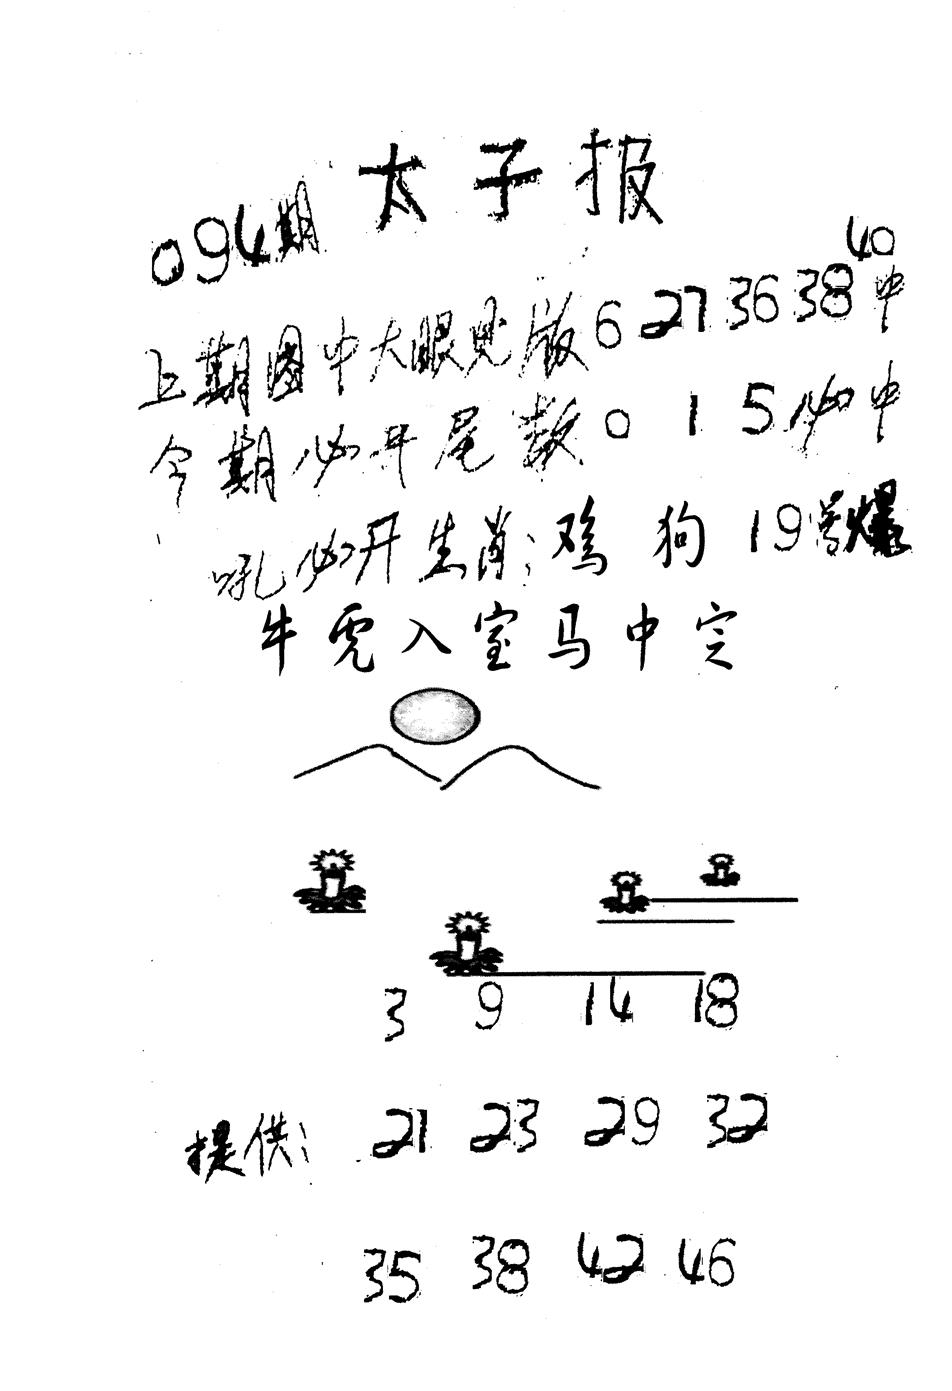 太子报
094期
40
上期图中大眼见版6 27 36 38中
今期必开尾数0 1 5必中
吼必开生肖:鸡 狗 19号爆
牛虎入室马中定
3 9 14 18
提供: 21 23 29 32
35 38 42 46